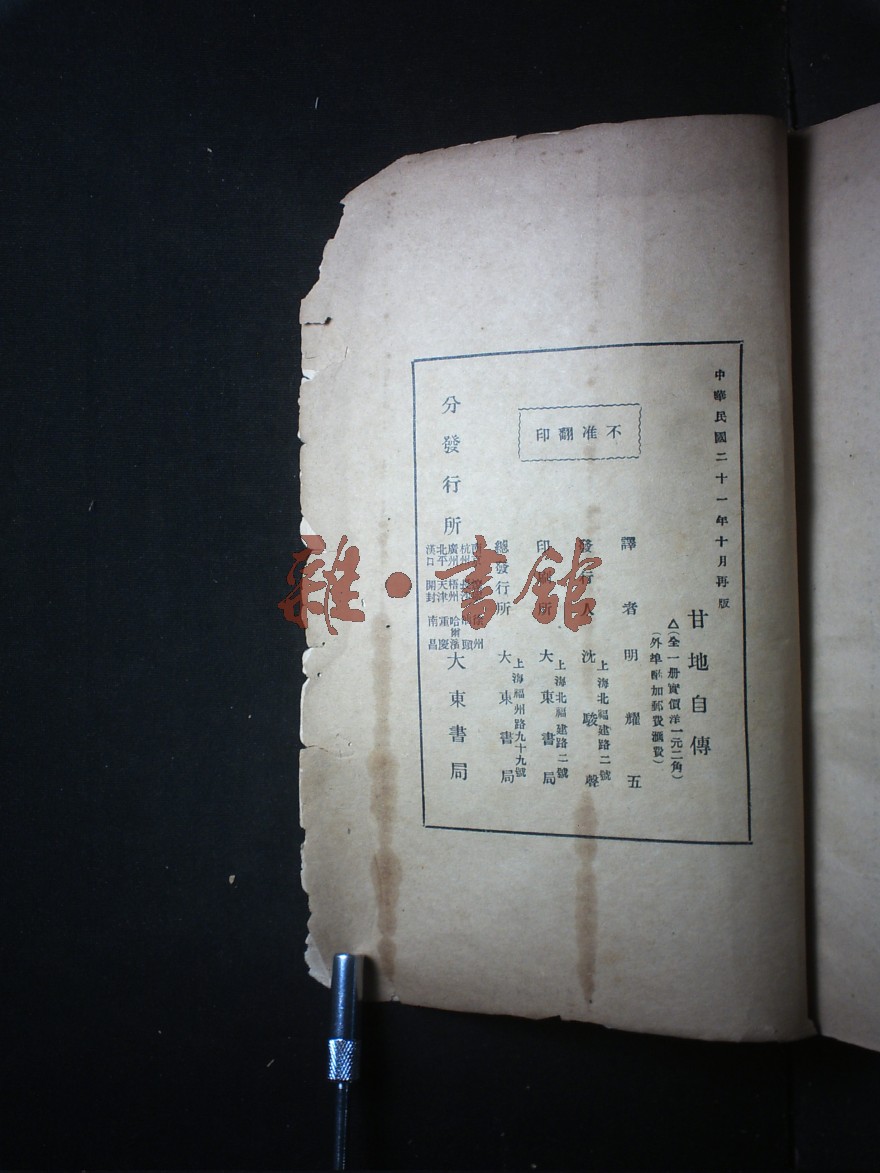 中華民國二十一年十月再版
甘地自傳
△(全一册實價洋一元二角)
(外埠酌加郵費滙費)
不准翻印
譯者 明耀五
發行人 沈駿聲
上海北福建路二號
印刷所 大東書局
上海北福建路二號
總發行所 大東書局
上海福州路九十九號
分發行所
廣州 梧州 哈爾濱
北平 天津 重慶
漢口 開封 南昌
大東書局
雜·書館